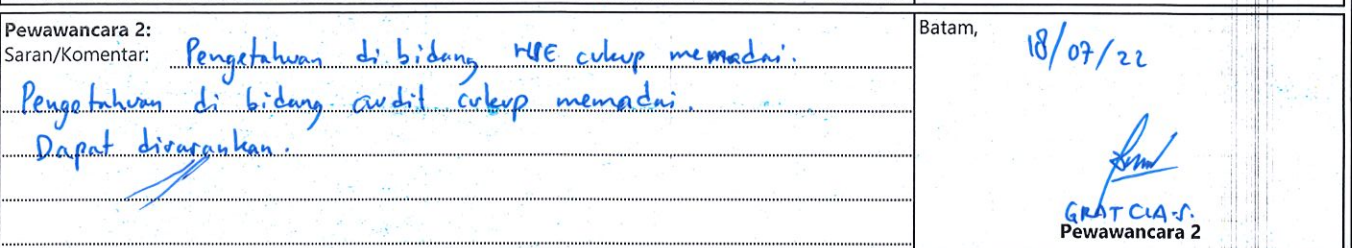 Pewawancara 2:
Saran/Komentar: Pengetahuan di bidang HSE cukup memadai.
Pengetahuan di bidang audit cukup memadai.
Dapat disarankan.
Batam, 18/07/22
GRATCIA.S.
Pewawancara 2